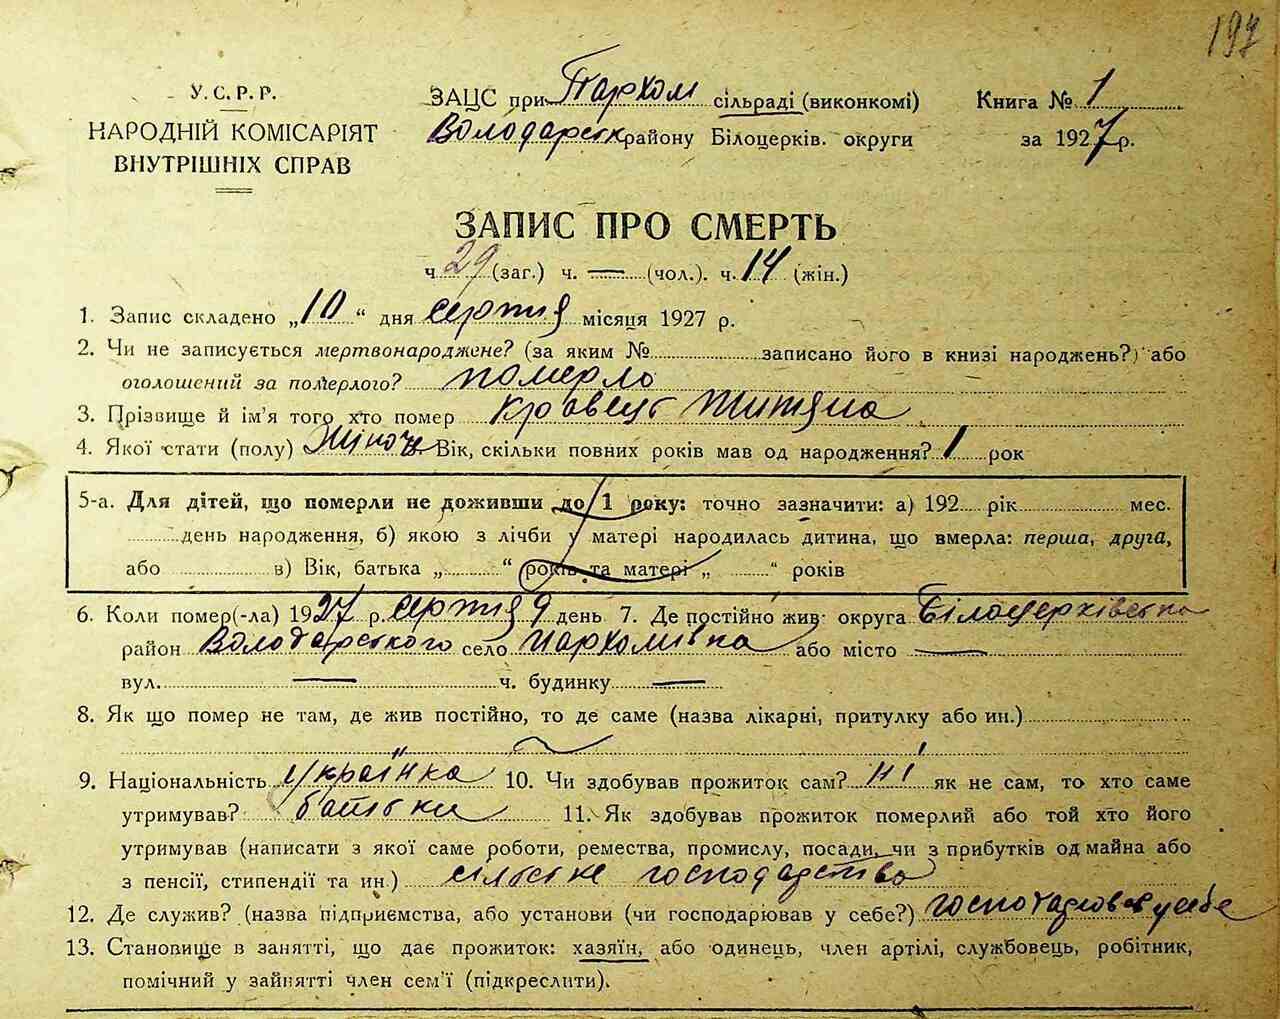 197
У.С.Р.Р.
НАРОДНІЙ КОМІСАРІЯТ
ВНУТРІШНІХ СПРАВ
ЗАЦС при Пархом сільраді (виконкомі)
Володарськ району Білоцерків. округи
Книга № 1
за 1927 р.
ЗАПИС ПРО СМЕРТЬ
ч. 29 (заг.) ч. — (чол.). ч. 14 (жін.)
1. Запис складено „10“ дня серпня місяця 1927 р.
2. Чи не записується мертвонароджене? (за яким № записано його в книзі народжень?) або
оголошений за померлого? померло
3. Прізвище й ім'я того хто помер Кравець
4. Якої стати (полу) Жіноч Вік, скільки повних років мав од народження? 1 рок
5-а. Для дітей, що померли не доживши до 1 року: точно зазначити: а) 192 рік мес.
день народження, б) якою з лічби у матері народилась дитина, що вмерла: перша, друга,
або в) Вік, батька „ “ років та матері „ “ років
6. Коли помер(-ла) 1927 р. серпня 9 день 7. Де постійно жив округа Білоцерківська
район Володарського село Пархомівка або місто —
вул. — ч. будинку —
8. Як що помер не там, де жив постійно, то де саме (назва лікарні, притулку або ин.)
9. Національність Українка 10. Чи здобував прожиток сам? Ні як не сам, то хто саме
утримував? батьки 11. Як здобував прожиток померлий або той хто його
утримував (написати з якої саме роботи, ремества, промислу, посади, чи з прибутків од майна або
з пенсії, стипендії та ин.) сільське господарство
12. Де служив? (назва підприємства, або установи (чи господарював у себе?) господарював у себе
13. Становище в занятті, що дає прожиток: хазяїн, або одинець, член артілі, службовець, робітник,
помічний у зайнятті член сем'ї (підкреслити).